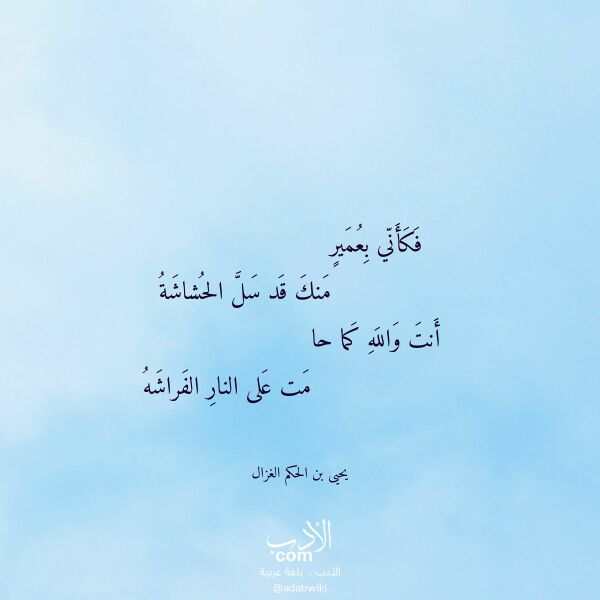 فَكَأَنّي بِعُمَيرٍ
مَنكَ قَد سَلَّ الحُشاشَةُ
أَنتَ وَاللَهِ كَما حا
مَت عَلى النارِ الفَراشَهُ
يحيى بن الحكم الغزال
الأدب
com
الأدب .. بلغة عربية
@adabwiki